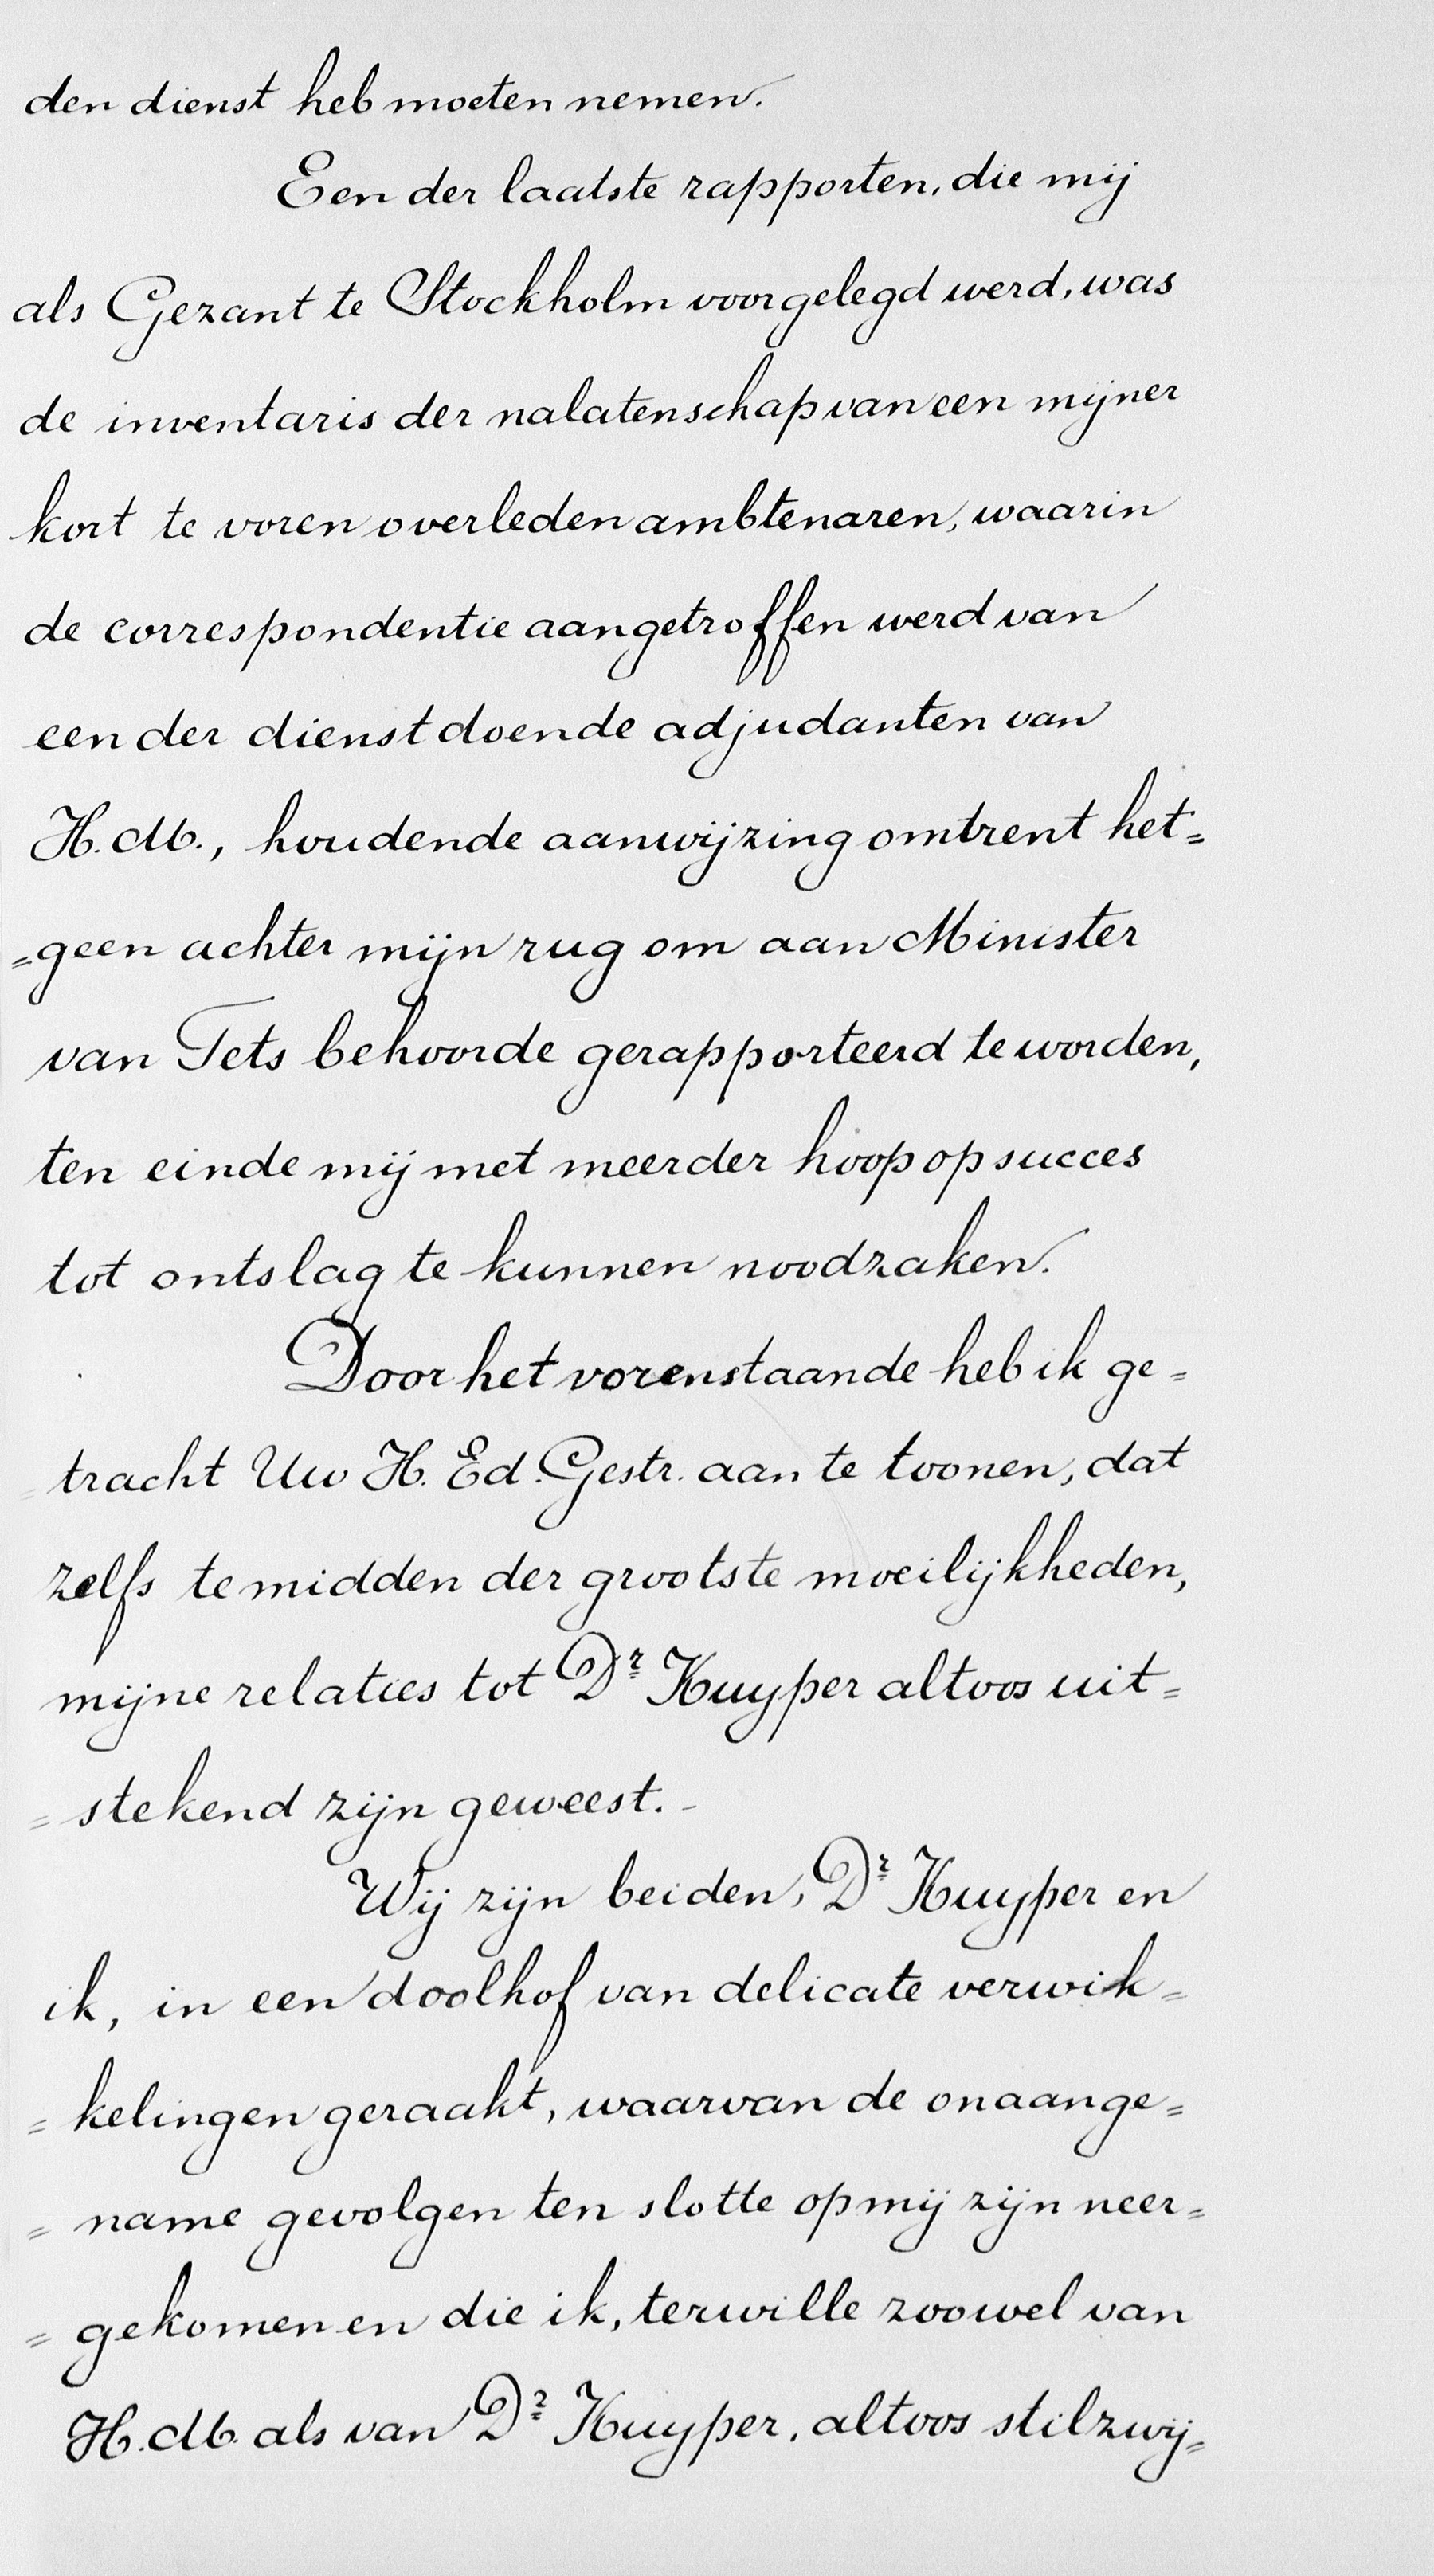 den dienst heb moeten nemen.
Een der laatste rapporten, die mij
als Gezant te Stockholm voorgelegd werd, was
de inventaris der nalatenschap van een mijner
kort te voren overleden ambtenaren, waarin
de correspondentie aangetroffen werd van
een der dienstdoende adjudanten van
H.M., houdende aanwijzing omtrent het=
=geen achter mijn rug om aan Minister
van Tets behoorde gerapporteerd te worden,
ten einde mij met meerder hoop op succes
tot ontslag te kunnen noodzaken.
Door het vorenstaande heb ik ge=
=tracht Uw H. Ed. Gestr. aan te toonen, dat
zelfs te midden der grootste moeilijkheden,
mijne relaties tot Dr Kuyper altoos uit=
=stekend zijn geweest.-
Wij zijn beiden, Dr Kuyper en
ik, in een doolhof van delicate verwik=
=kelingen geraakt, waarvan de onaange=
=name gevolgen ten slotte op mij zijn neer=
=gekomen en die ik, terwille zoowel van
H.M. als van Dr Kuyper, altoos stilzwij=